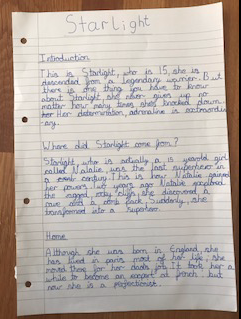 Starlight
Introduction
This is Starlight, who is 15, she is
descended from a legendary warrior. But
there is one thing you have to know
about Starlight she never gives up no
matter how many times she's knocked down.
Her determination, adrenaline is extraordin-
ary.
Where did Starlight come from?
Starlight who is actually a 15 year old girl
called Natalie, was the last superhero in
a century. This is how Natalie gained
her powers. Two years ago Natalie explored
the rugged, cliffs, she discovered a
cave and a back pack. Suddenly, she
transformed into a superhero.
Home
Although she was born in England, she
has lived in paris most of her life, she
moved there for her dads job. It took her a
while to become an expert at french but
now she is a perfectionist.